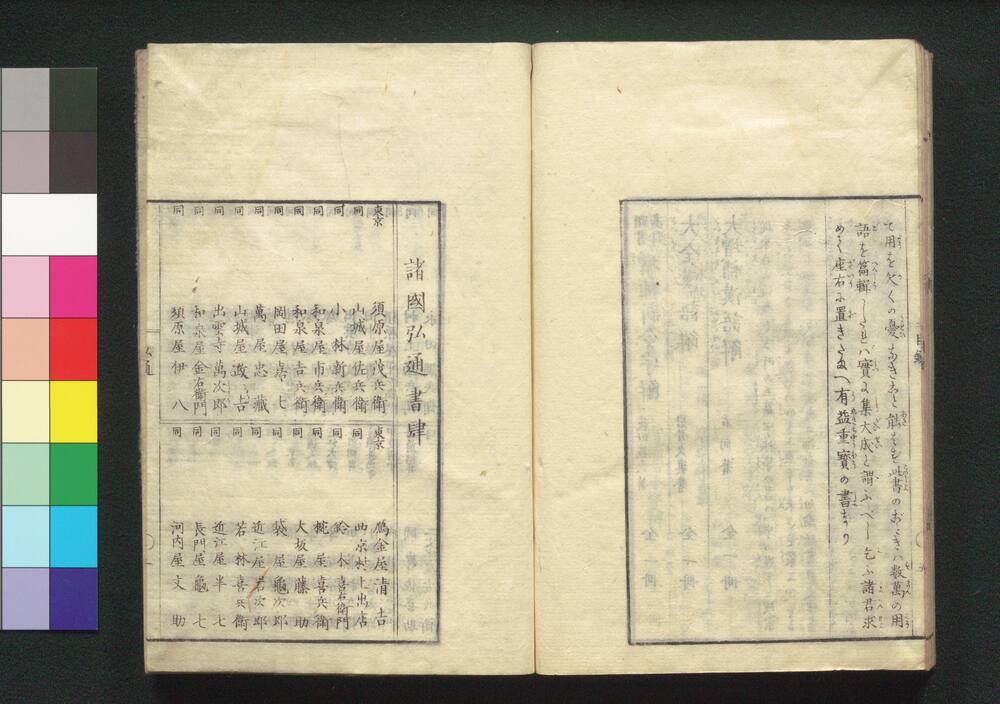 て用を欠くの憂
此書のおときハ数萬の用
語を篇輯し
バ實に集大成と謂ふべし乞ふ諸君求
めて座右に置き
有益重寶の書なり
諸國弘通書肆
東京 須原屋茂兵衛
同 山城屋佐兵衛
同 小林新兵衛
同 和泉屋市兵衛
同 和泉屋吉兵衛
同 岡田屋嘉七
同 萬屋忠藏
同 山城屋政吉
同 出雲寺萬次郎
同 和泉屋金右衛門
同 須原屋伊八
東京 鴈金屋清吉
同 西京村上出店
同 鈴木喜右衛門
同 椀屋喜兵衛
同 大坂屋藤助
同 袋屋亀次郎
同 近江屋岩次郎
同 若林喜兵衛
同 近江屋半七
同 長門屋龜七
同 河内屋文助